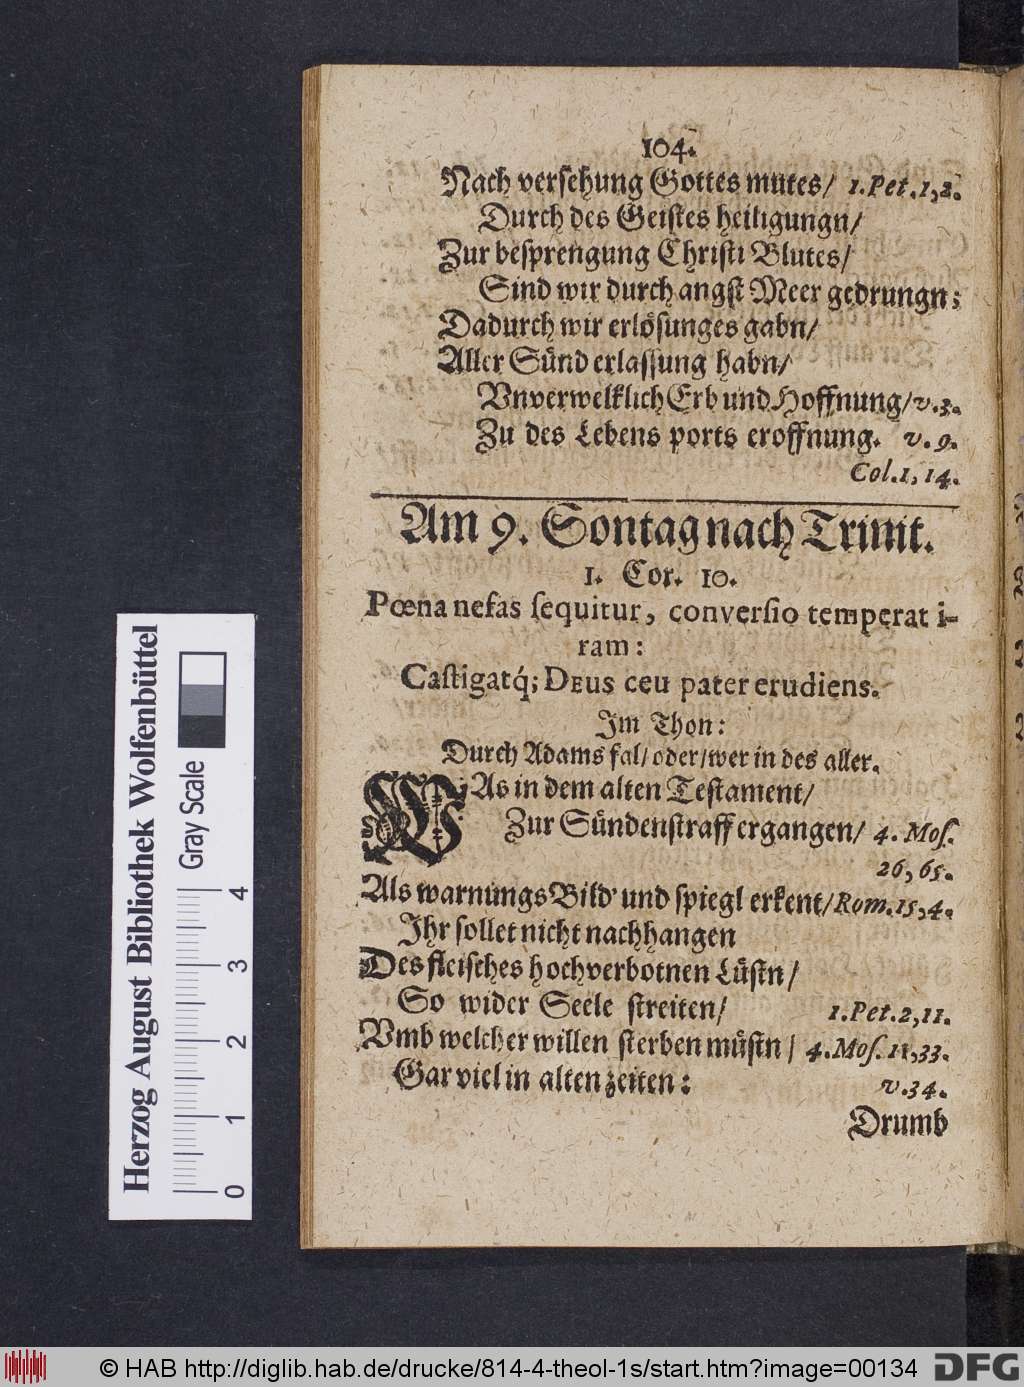 104.
Nach versehung Gottes mutes/ 1.Pet.1,2.
Durch des Geistes heiligungn/
Zur besprengung Christi Blutes/
Sind wir durch angst Meer gedrungn;
Dadurch wir erlösunges gabn/
Aller Sünd erlassung habn/
Vnverwelklich Erb und Hoffnung/ v.3.
Zu des Lebens ports eroffnung. v. 9.
Col.1,14.
Am 9. Sontag nach Trinit.
1. Cor. 10.
Pœna nefas ſequitur, converſio temperat i-
ram:
Caſtigatq́; DEus ceu pater erudiens.
Im Thon:
Durch Adams fal/ oder/ wer in des aller.
WAs in dem alten Testament/
Zur Sündenstraff ergangen/ 4. Moſ.
26,65.
Als warnungs Bild und spiegl erkent/ Rom.15,4.
Ihr sollet nicht nachhangen
Des fleisches hochverbotnen Lüstn/
So wider Seele streiten/ 1.Pet.2,11.
Vmb welcher willen sterben müstn/ 4.Moſ.11,33.
Gar viel in alten zeiten: v.34.
Drumb
Herzog August Bibliothek Wolfenbüttel
Gray Scale
0 1 2 3 4
© HAB http://diglib.hab.de/drucke/814-4-theol-1s/start.htm?image=00134
DFG